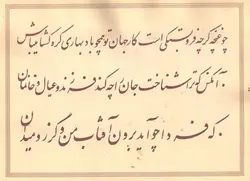 چو غنچه گرچه فروبستگی است کار جهان تو همچو باد بهاری گره گشا میباش
آنکس که ترا شناخت جان را چه کند فرزند و عیال و خانمان
که فردا چو آید برون آفتاب من و گرز و میدان